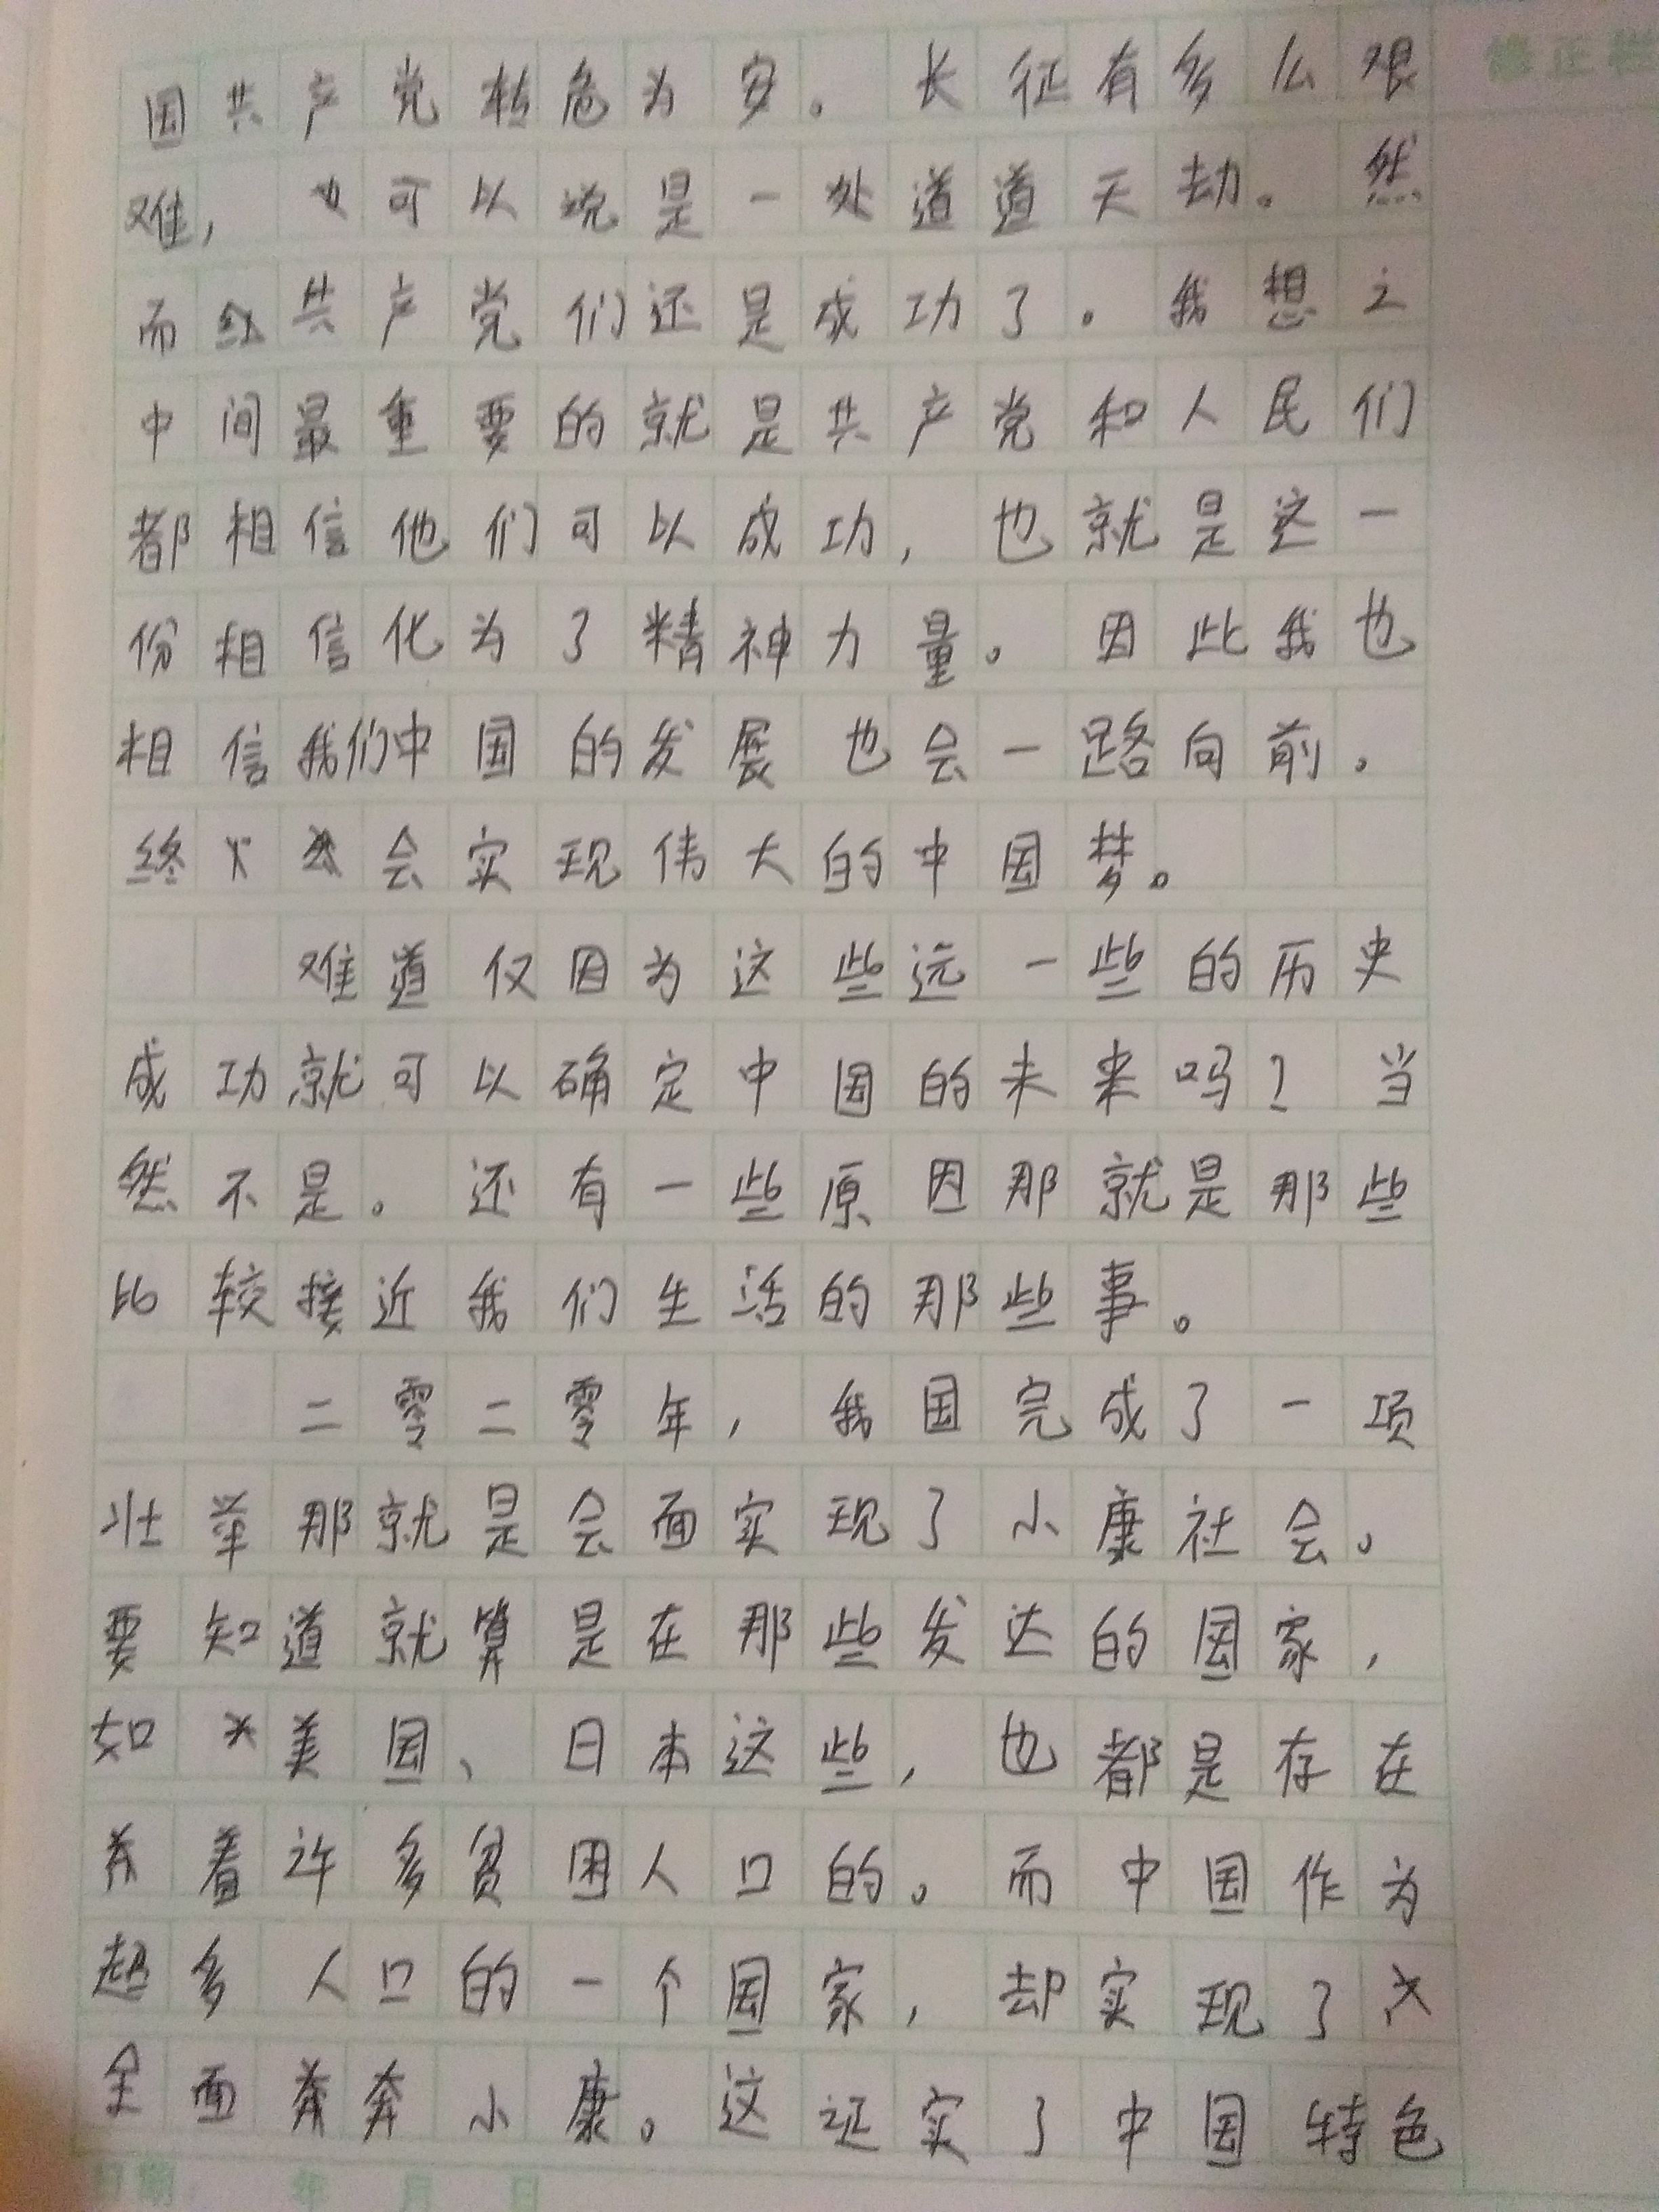 修正栏
国共产党转危为安。长征有多么艰
难,可以说是一处道道天劫。然
而共产党们还是成功了。我想之
中间最重要的就是共产党和人民们
都相信他们可以成功,也就是这一
份相信化为了精神力量。因此我也
相信我们中国的发展也会一路向前。
终会实现伟大的中国梦。
难道仅因为这些远一些的历史
成功就可以确定中国的未来吗?当
然不是。还有一些原因那就是那些
比较接近我们生活的那些事。
二零二零年,我国完成了一项
壮举那就是会面实现了小康社会。
要知道就算是在那些发达的国家,
如美国、日本这些,也都是存在
着许多贫困人口的。而中国作为
超多人口的一个国家,却实现了
全面奔小康。这证实了中国特色
日期 年 月 日